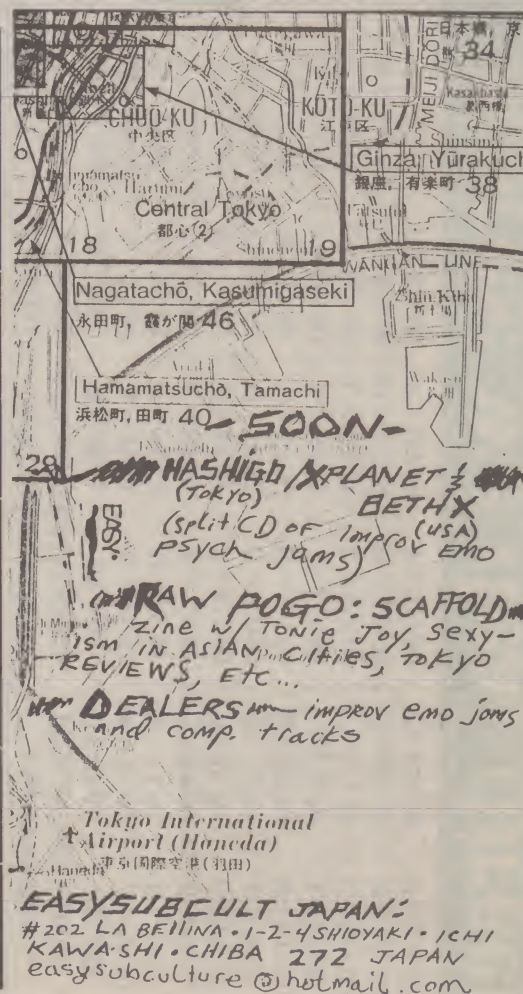 日本橋, 京
34
MEIJI DORI
CHŪŌ-KU
中央区
KŌTŌ-KU
江東区
Ginza, Yūrakuch
銀座, 有楽町 38
Harumi
Central Tokyo
都心(2)
18
19
WANGAN LINE
Nagatachō, Kasumigaseki
永田町, 霞が関 46
Hamamatsuchō, Tamachi
浜松町, 田町 40
- SOON -
29
HASHIGO / XPLANET &
(TOKYO)
BETH X
(USA)
(split CD OF improv EMO
psych jams)
EASY
RAW POGO: SCAFFOLD
zine w/ TONIE JOY, sexy-
ism in ASIAN cities, TOKYO
REVIEWS, Etc...
DEALERS — improv emo jams
and comp. tracks
Tokyo International
Airport (Haneda)
東京国際空港(羽田)
Haneda
EASYSUBCULT JAPAN:
#202 LA BELLINA • 1-2-4 SHIOYAKI • ICHI
KAWA-SHI • CHIBA 272 JAPAN
easysubculture@hotmail.com